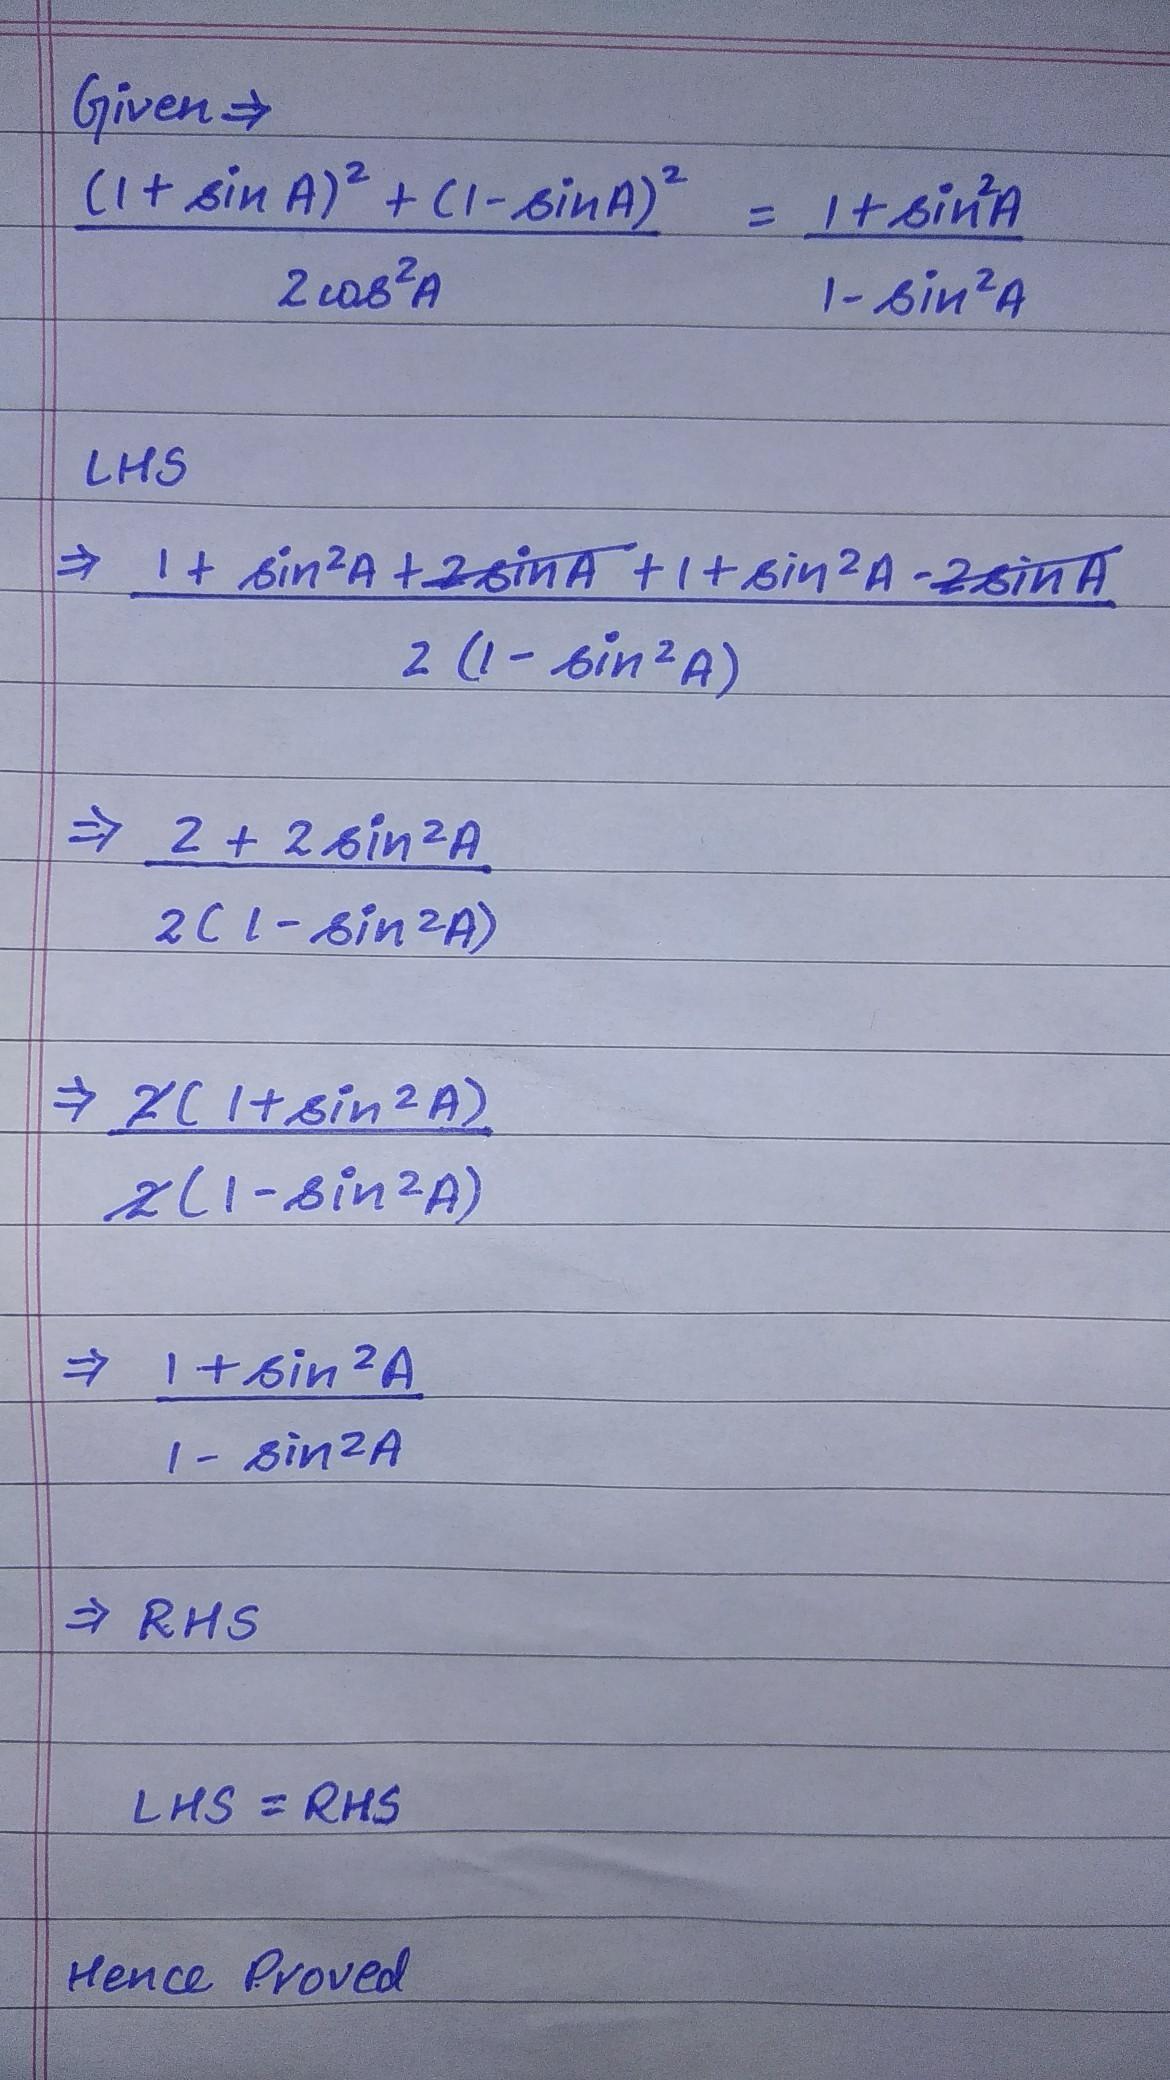 Given ⇒
(1 + sin A)² + (1 - sin A)² = 1 + sin²A
2 cos²A 1 - sin²A
LHS
⇒ 1 + sin²A + 2 sin A + 1 + sin²A - 2 sin A
2 (1 - sin²A)
⇒ 2 + 2 sin²A
2 (1 - sin²A)
⇒ 2 (1 + sin²A)
2 (1 - sin²A)
⇒ 1 + sin²A
1 - sin²A
⇒ RHS
LHS = RHS
Hence Proved